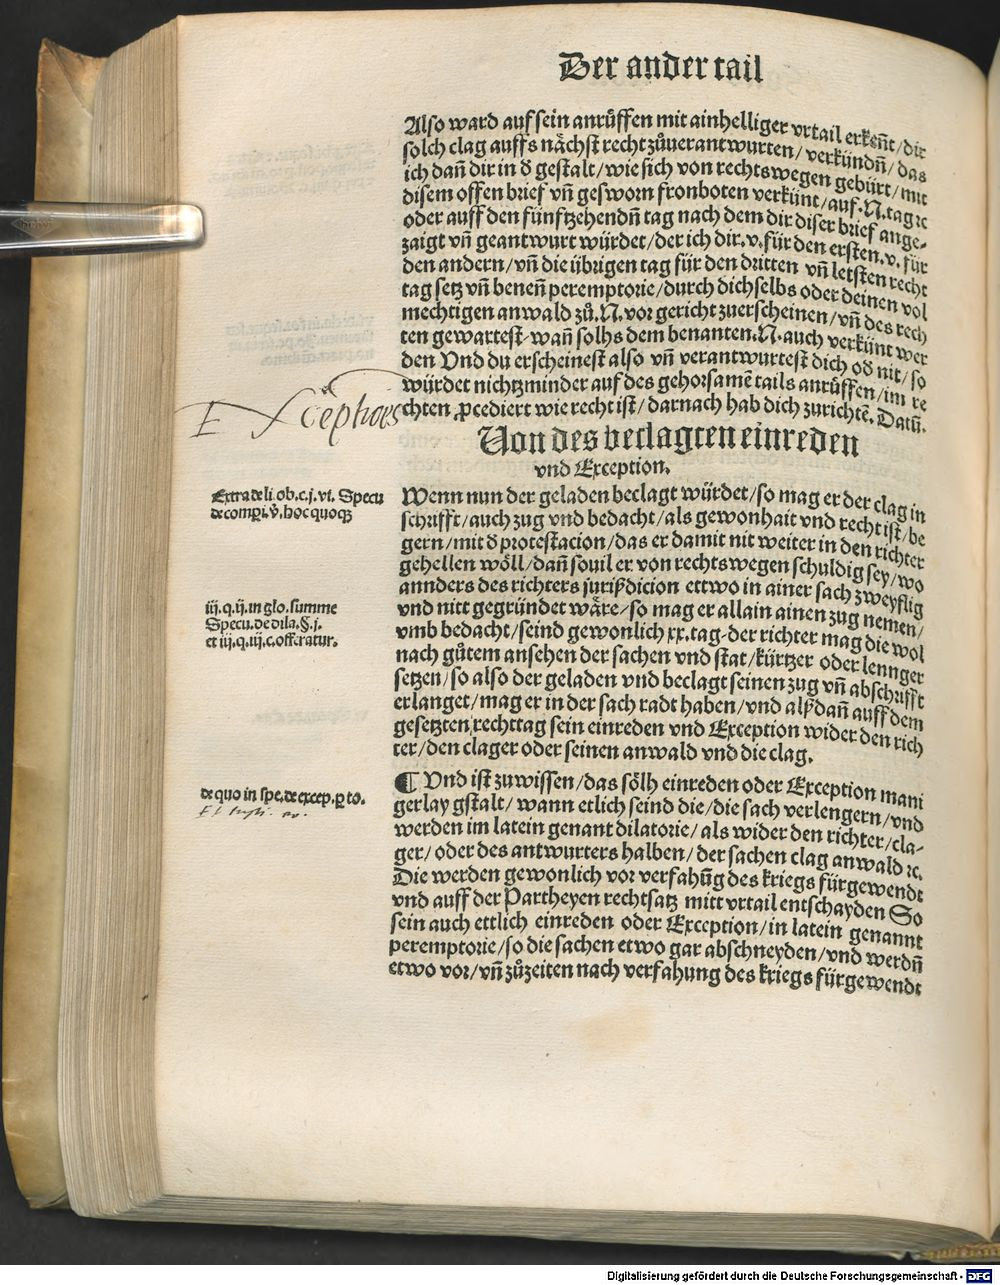 Der ander tail
Also ward auf sein anrůffen mit ainhelliger vrtail erkeñt/dir
solch clag auffs nächst recht zůuerantwurten/ verkündñ/ das
ich dañ dir in d̕ gestalt/wie sich von rechtswegen gebürt/mit
disem offen brief vñ gesworn fronboten verkünt/auf.N.tag ⁊c
oder auff den fünfftzehendñ tag nach dem dir diser brief ange-
zaigt vñ geantwurt würdet/der ich dir.v.für den ersten.v.für
den andern/vñ die übrigen tag für den dritten vñ letsten recht
tag setz vñ beneñ peremptorie/durch dich selbs oder deinen vol
mechtigen anwald zů.N.vor gericht zuerscheinen/vñ des rech
ten gewartest-wañ solhs dem benanten.N.auch verkünt wer
den Vnd du erscheinest also vñ verantwurtest dich od̕ nit/so
würdet nichtzminder auf des gehorsamē tails anrůffen/im re
chten ꝓcediert wie recht ist/darnach hab dich zurichtē. Datū.
Exceptiones
Von des beclagten einreden
vnd Exception.
Extra de li. ob. c. j. vi. Specu
de compei. v̕. hoc quoqꝫ
Wenn nun der geladen beclagt würdet/so mag er der clag in
schrifft/auch zug vnd bedacht/als gewonhait vnd recht ist/be
gern/mit d̕ protestacion/das er damit nit weiter in den richter
gehellen wöll/dañ souil er von rechtswegen schuldig sey/wo
annders des richters jurißdicion ettwo in ainer sach zweyflig
vnd nitt gegründet wäre/so mag er allain ainen zug nemen/
vmb bedacht/seind gewonlich xx.tag-der richter mag die wol
nach gůtem ansehen der sachen vnd stat/kürtzer oder lennger
setzen/so also der geladen vnd beclagt seinen zug vñ abschrifft
erlanget/mag er in der sach radt haben/vnd alßdañ auff dem
gesetzten rechttag sein einreden vnd Exception wider den rich
ter/den clager oder seinen anwald vnd die clag.
iij. q. ij. in glo. summe
Specu. de dila. §. j.
et iij. q. iij. c. off. ratur.
¶ Vnd ist zuwissen/das sölh einreden oder Exception mani
gerlay gstalt/wann etlich seind die/die sach verlengern/vnd
werden im latein genant dilatorie/als wider den richter/cla-
ger/oder des antwurters halben/der sachen clag anwald ⁊c.
Die werden gewonlich vor verfahūg des kriegs fürgewendt
vnd auff der Partheyen rechtsatz mitt vrtail entschayden So
sein auch ettlich einreden oder Exception/in latein genannt
peremptorie/so die sachen etwo gar abschneyden/vnd werdñ
etwo vor/vñ zůzeiten nach verfahung des kriegs fürgewendt
de quo in spe. de excep. ꝑ to.
Digitalisierung gefördert durch die Deutsche Forschungsgemeinschaft - DFG